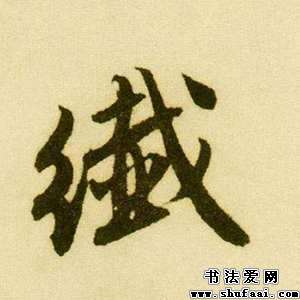 纎
书法爱网
www.shufaai.com